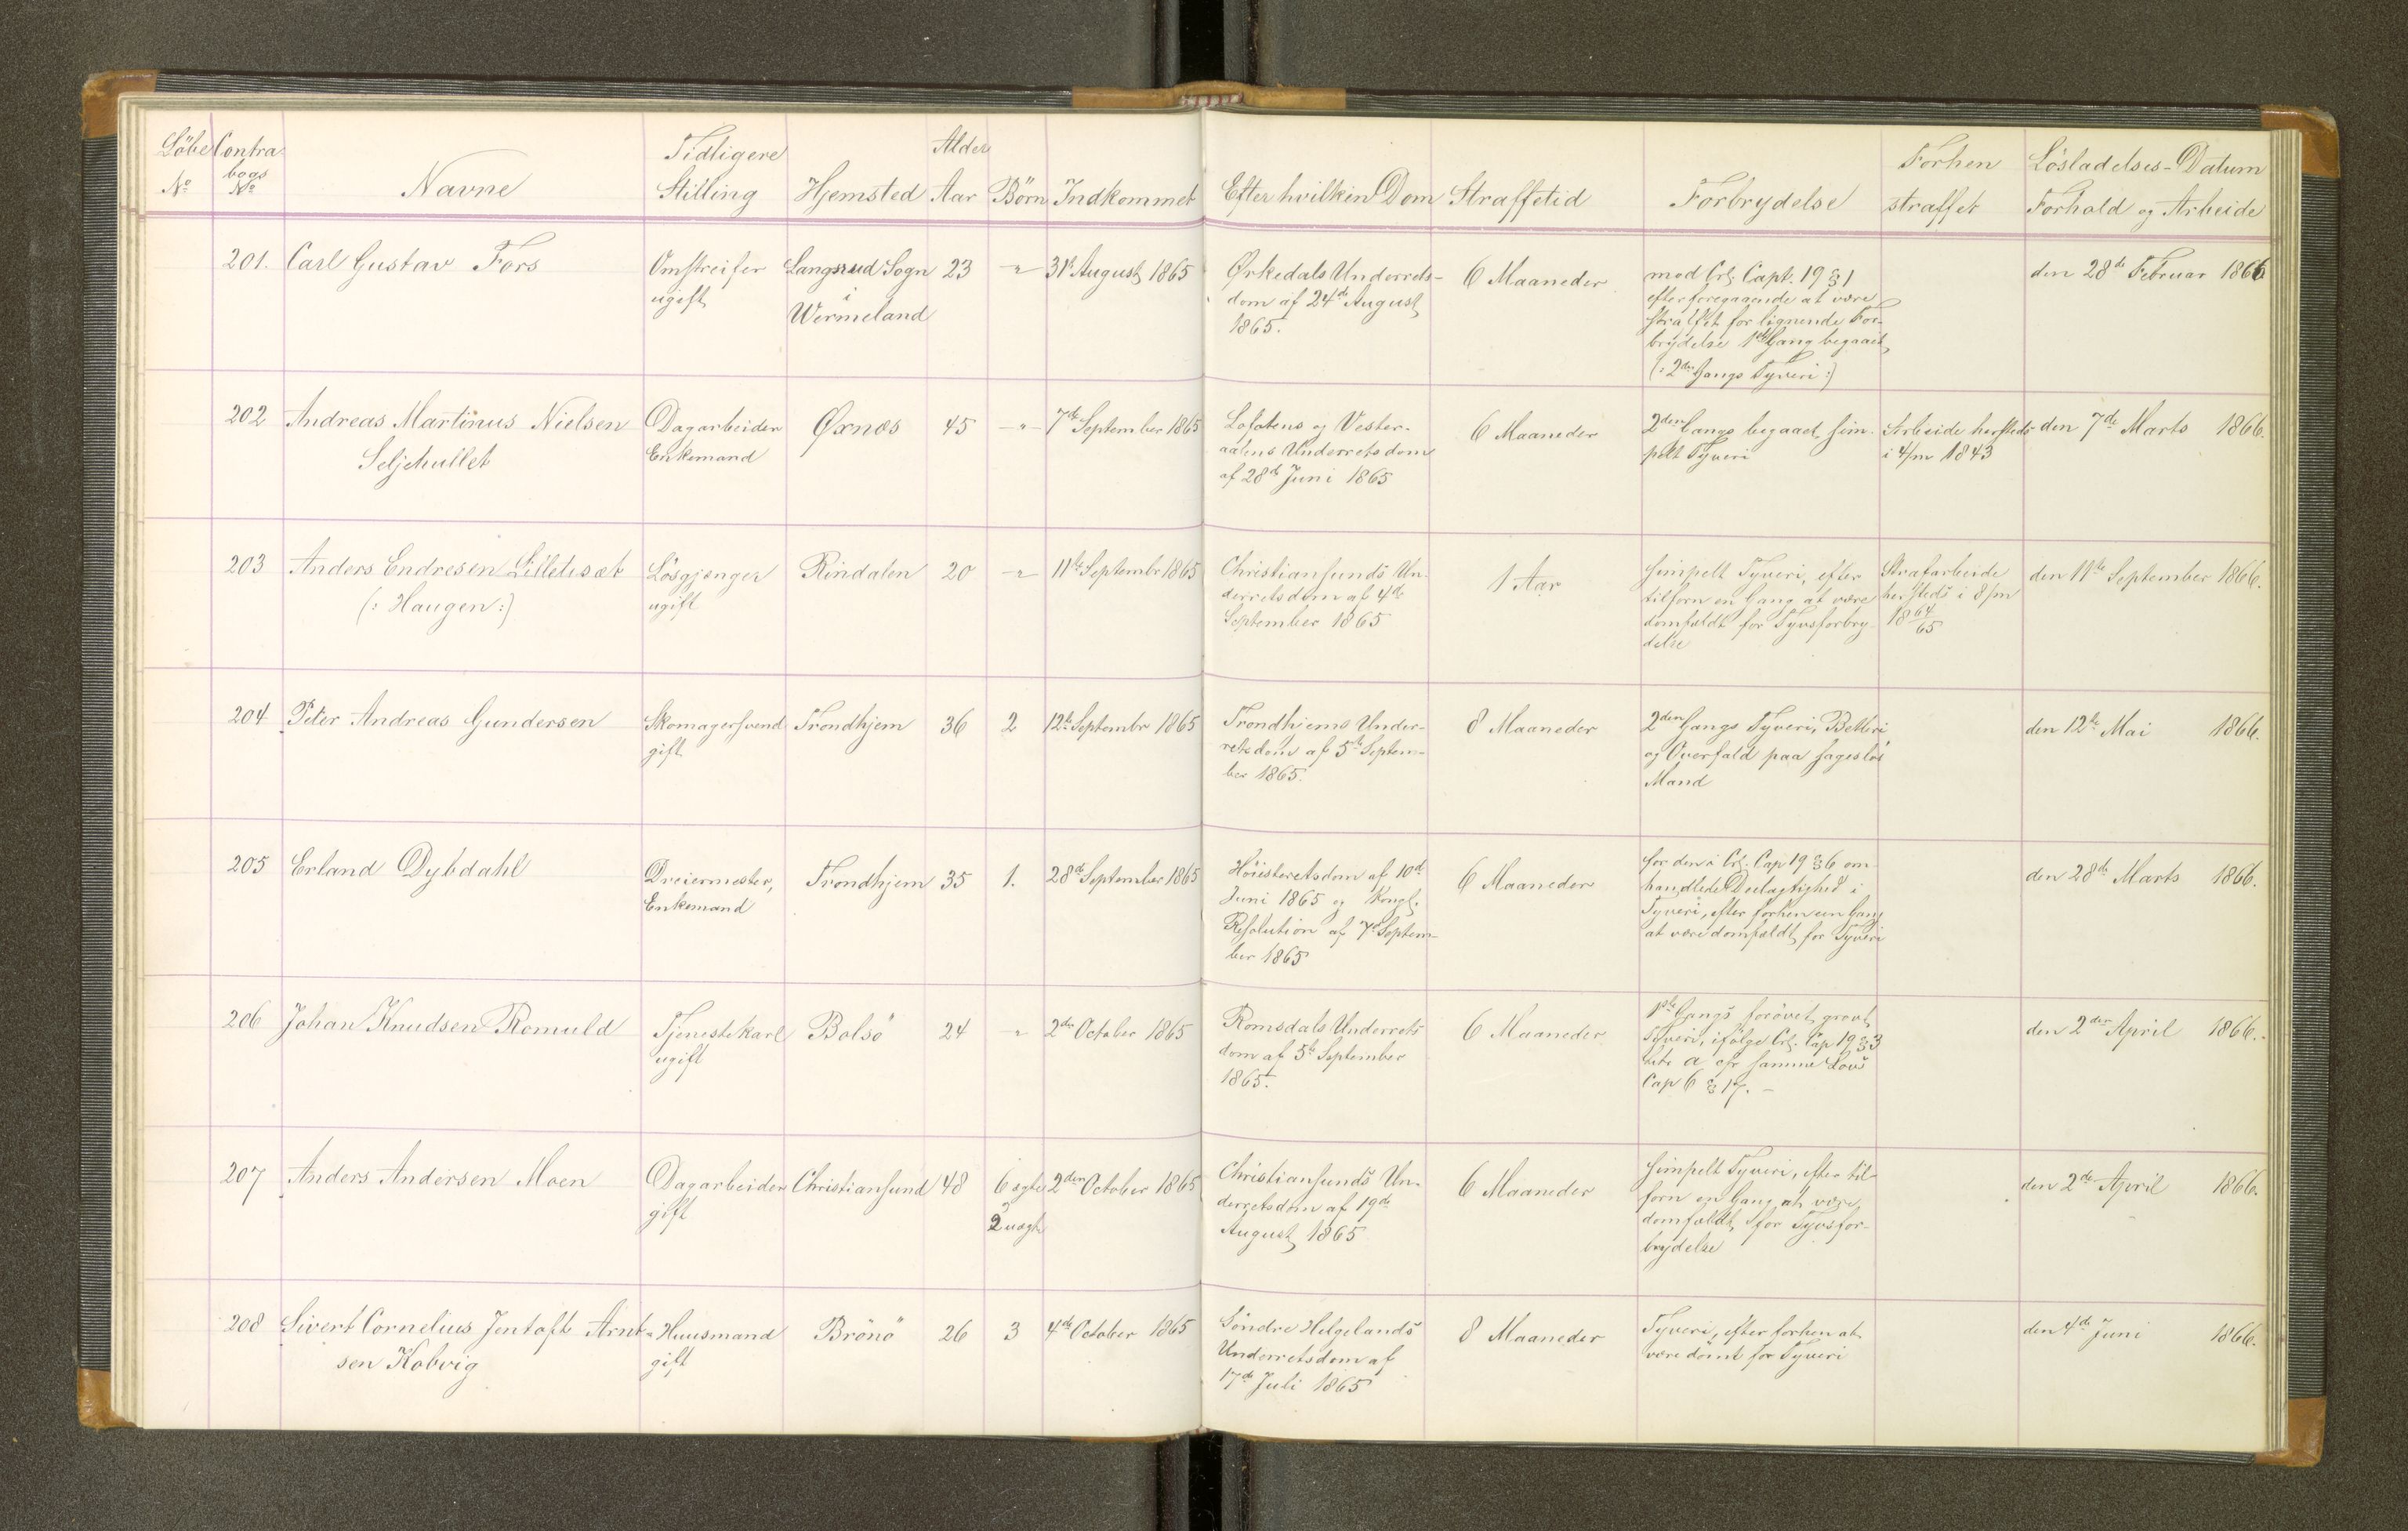 Löbe Contra-
bogs
No No Navne Tidligere Stilling Hjemsted Alder Aar Börn Indkommet Efter hvilken Dom Straffetid Forbrydelse Forhen straffet Lösladelses-Datum Forhold og Arbeide
201. Carl Gustav Fors
Omstreifer
ugift
Langsrud Sogn
i
Wermeland
23 -"- 31te August 1865
Ørkedals Underrets-
dom af 24de August
1865.
6 Maaneder
mod Crl. Capt. 19 § 1
efter foregaaende at være
straffet for lignende For-
brydelse 1ste Gang begaaet,
(: 2den Gangs Tyveri :)
den 28de Februar 1866
202 Andreas Martinus Nielsen
Seljehullet
Dagarbeider
Enkemand
Øxnæs
45 -"- 7de September 1865
Lofotens og Vester-
aalens Underretsdom
af 28de Juni 1865
6 Maaneder
2den Gangs begaaet sim-
pelt Tyveri
Arbeide hersteds
i 4/m 1843
den 7de Marts 1866.
203 Anders Endresen Lilletisæt
(: Haugen :)
Lösgjænger
ugift
Rindalen
20 -"- 11te Septembr 1865
Christiansunds Un-
derretsdom af 4de
September 1865
1 Aar
simpelt Tyveri, efter
tilforn en Gang at være
domfældt for Tyvsforbry-
delse
Strafarbeide
hersteds i 8/m
18 64/65
den 11te September 1866.
204 Peter Andreas Gundersen
Skomagersvend
gift
Trondhjem
36 2 12te Septembr 1865
Trondhjems Under-
retsdom af 5te Septem-
ber 1865.
8 Maaneder
2den Gangs Tyveri, Betleri
og Overfald paa sageslös
Mand
den 12te Mai 1866.
205 Erland Dybdahl
Dreiermester,
Enkemand
Trondhjem
35 1. 28de September 1865
Höiesteretsdom af 10de
Juni 1865 og Kongl.
Resolution af 7de Septem-
ber 1865
6 Maaneder
for den i Crl. Cap 19 § 6 om-
handlede Deelagtighed i
Tyveri, efter forhen een Gang
at være domfældt for Tyveri
den 28de Marts 1866.
206 Johan Knudsen Romuld
Tjenestekarl
ugift
Bolsö
24 " 2den October 1865
Romsdals Underrets
dom af 5te September
1865.
6 Maaneder
1ste Gangs forövet grovt
Tyveri, ifölge Crl. Cap 19 § 3
litr a cfr samme Lovs
Cap 6 § 17. -
den 2den April 1866.
207 Anders Andersen Moen
Dagarbeider
gift
Christiansund
48 6 ægte
2 uægte
2den October 1865
Christiansunds Un-
derretsdom af 19de
August 1865
6 Maaneder
simpelt Tyveri, efter til-
forn en Gang at være
domfældt for Tyvsfor-
brydelse
den 2de April 1866.
208 Sivert Cornelius Jentoft Arnt-
sen Kobvig
Huusmand
gift
Brönö
26 3 4de October 1865
Söndre Helgelands
Underretsdom af
17de Juli 1865
8 Maaneder
Tyveri, efter forhen at
være dömt for Tyveri
den 4de Juni 1866.